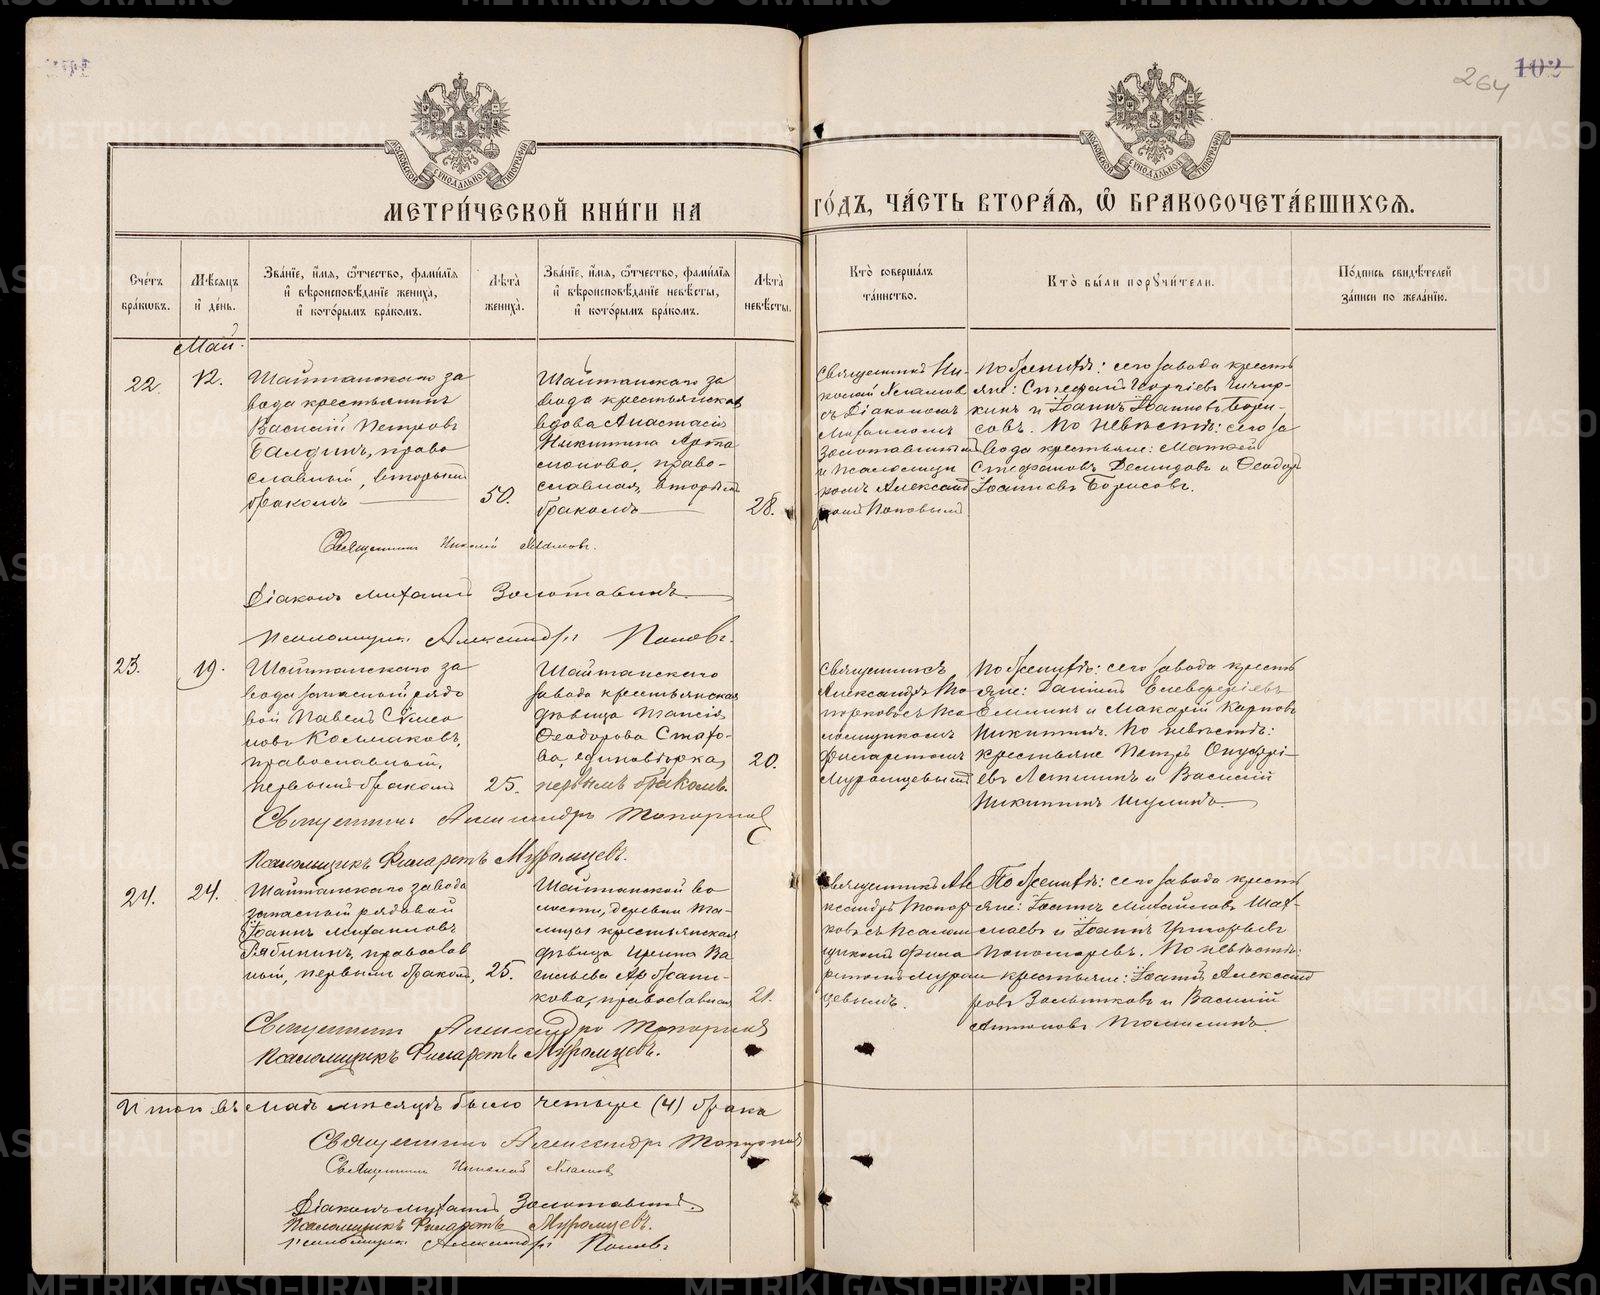 264 102
МЕТРИ́ЧЕСКОЙ КНИ́ГИ НА ГО́ДЪ, ЧА́СТЬ ВТОРА́Я, Ѡ҆ БРАКОСОЧЕТА́ВШИХСЯ.
Сче́тъ бра́кѡвъ.
Мѣ́сяцъ и҆ де́нь.
Зва́нїе, и҆́мя, ѻ҆́тчество, фами́лїя
и҆ вѣроисповѣ́данїе жениха̀,
и҆ кото́рымъ бра́комъ.
Лѣта̀ жениха̀.
Зва́нїе, и҆́мя, ѻ҆́тчество, фами́лїя
и҆ вѣроисповѣ́данїе невѣ́сты,
и҆ кото́рымъ бра́комъ.
Лѣта̀ невѣ́сты.
Кто̀ соверша́лъ
та́инство.
Кто̀ бы́ли порꙋчи́тели.
По́дпись свидѣ́телей
за́писи по жела́нїю.
Май.
22.
12.
Шайтанскаго за
вода крестьянинъ
Василій Петровъ
Балдинъ, право
славный, вторымъ
бракомъ
50.
Шайтанскаго за
вода крестьянская
вдова Анастасія
Никитина Арта
монова, право-
славная, вторымъ
бракомъ
28.
Священникъ Ни-
колай
съ Діакономъ
Михаиломъ
Золотавинымъ
и псаломщи
комъ Александ
ромъ Поповымъ
По женихѣ: сего завода кресть
яне: Стефанъ Георгіевъ
и Іоаннъ Іоанновъ Бори-
совъ. По невѣстѣ: сего за
вода крестьяне: Матвей
Стефановъ Демидовъ и Ѳеодоръ
Іоанновъ Борисовъ.
Священникъ Николай
Діаконъ Михаилъ Золотавинъ.
Псаломщикъ Александръ Поповъ.
23.
19.
Шайтанскаго за
вода запасный рядо
вой Павелъ Симо
новъ Колмаковъ,
православный,
первымъ бракомъ
25.
Шайтанскаго
завода крестьянская
дѣвица Таисія
Ѳеодорова Стахо-
ва, единовѣрка,
первымъ бракомъ.
20.
Священникъ
Александръ То
порковъ съ Пса
ломщикомъ
Филаретомъ
Муромцевымъ
По женихѣ: сего завода кресть
яне: Даніилъ Елевферіевъ
Емлинъ и Макарій Карповъ
Никитинъ. По невѣстѣ:
крестьяне Петръ Онуфрі-
евъ Лапшинъ и Василій
Никитинъ Шулинъ.
Священникъ Александръ Топорковъ
Псаломщикъ Филаретъ Муромцевъ.
24.
24.
Шайтанскаго завода
запасный рядовой
Іоаннъ Михаиловъ
Рябининъ, православ
ный, первымъ бракомъ,
25.
Шайтанской во
лости, деревни Та-
лицы крестьянская
дѣвица Ирина Ва
сильева
православная
21.
Священникъ Але
ксандръ Топор
ковъ съ Псалом
щикомъ Фила
ретомъ Муром
цевымъ.
По женихѣ: сего завода кресть
яне: Іоаннъ Михайловъ
и Іоаннъ Григорьевъ
Пономаревъ. По невѣстѣ:
крестьяне: Іоаннъ Александ
ровъ и Василій
Антоновъ Томилинъ.
Священникъ Александръ Топорковъ
Псаломщикъ Филаретъ Муромцевъ.
Итого въ маѣ мѣсяцѣ было четыре (4) брака
Священникъ Александръ Топорковъ
Священникъ Николай
Діаконъ Михаилъ Золотавинъ.
Псаломщикъ Филаретъ Муромцевъ.
Псаломщикъ Александръ Поповъ
METRIKI.GASO-URAL.RU